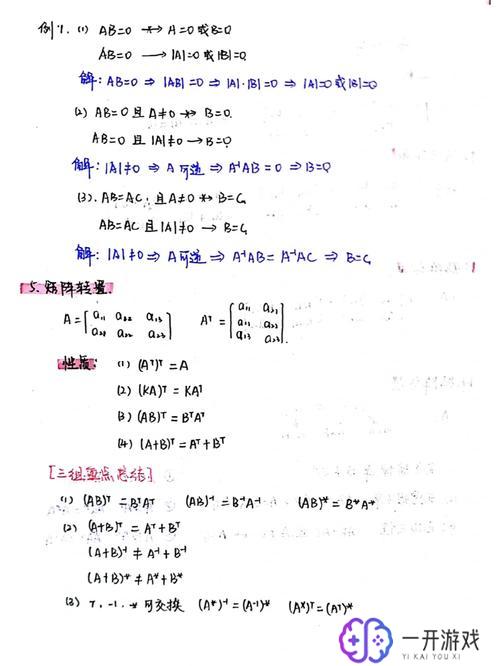 例1. (1) AB=0 ↛ A=0 或 B=0
AB=0 → |A|=0 或 |B|=0
解: AB=0 ⇒ |AB|=0 ⇒ |A|·|B|=0 ⇒ |A|=0 或 |B|=0
(2) AB=0 且 A≠0 ↛ B=0.
AB=0 且 |A|≠0 → B=0
解: |A|≠0 ⇒ A可逆 ⇒ A⁻¹AB=0 ⇒ B=0
(3). AB=AC 且 A≠0 ↛ B=C
AB=AC 且 |A|≠0 → B=C
解: |A|≠0 ⇒ A可逆 ⇒ A⁻¹AB=A⁻¹AC ⇒ B=C
5. 矩阵转置.
A=[a₁₁ a₂₂ a₁₃ Aᵀ=[a₁₁ a₂₁
a₂₁ a₂₂ a₂₃] a₁₁ a₂₂
a₁₃ a₂₃]
性质: (1) (Aᵀ)ᵀ=A
(2) (KA)ᵀ=KAᵀ
(3) (AB)ᵀ=BᵀAᵀ
(4) (A+B)ᵀ=Aᵀ+Bᵀ
[三组重点总结]
(1) (AB)ᵀ=BᵀAᵀ (AB)⁻¹=B⁻¹A⁻¹ (AB)*=B*A*
(2) (A+B)ᵀ=Aᵀ+Bᵀ
(A+B)⁻¹≠A⁻¹+B⁻¹
(A+B)*≠A*+B*
(3) T, -1, * 可交换 (A*)⁻¹=(A⁻¹)* (A*)ᵀ=(Aᵀ)*
一开游戏
YI KAI YOU XI